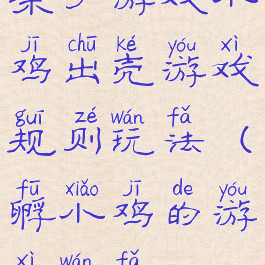 jī chū ké yóu xì
鸡出壳游戏
guī zé wán fǎ
规则玩法（
fū xiǎo jī de yóu
孵小鸡的游
xì wán fǎ